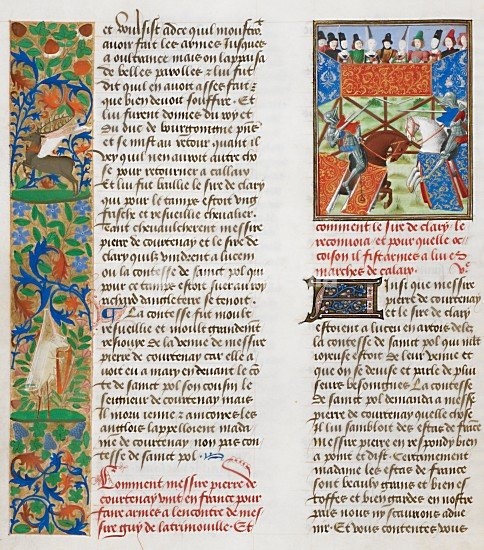 et voulsist adce quil moustrast
avoir fait les armes iusques
a oultrance mais on lappaisa
de belles parolles et lui fut
dit quil en avoit asses fait et
que bien devoit souffire. Et
lui furent donnes du roy et
du duc de bourgongne pns
et se mist au retour quant il
vey quil nen auroit autre cho
se pour retourner a callaix
Et lui fut baillie le sire de clary
qui pour le temps estoit ung
frische et recueillie chevalier.
Tant chevaulcherent messire
pierre de courtenay et le sire de
clary quilz vindrent a luceu
ou la contesse de sainct pol qui
pour ce temps estoit suer au roy
richard dangleterre se tenoit.
La contesse fut moult
resiouye de la venue de messire
pierre de courtenay car elle a
voit eu a mary en devant le con
te de sainct pol son cousin le
seigneur de courtenay mais
il morut ienne et ancores les
anglois lappelloient mada
me de courtenay non pas con
tesse de sainct pol.
Comment messire pierre de
courtenay vint en france pour
faire armes a lencontre de mes
sire guy de la trimouille. Et
comment le sire de clary le
reconvoia et pour quelle oc
coison il fist armes a lui es
marches de calaix.
Ainsi que messire
pierre de courtenay
et le sire de clary
estoient a luceu en artois delez
la contesse de sainct pol qui mlt
ioyeuse estoit de leur venue et
que on se devise et parle de plu
seurs besongnes La contesse
de sainct pol demanda a messe
pierre de courtenay quelle chose
il lui sambloit des estas de france
messire pierre en respondy bien
a point et dist. Certainement
madame les estas de france
sont beaulx grans et bien es
toffes et bien gardes en nostre
pais nous ny scaurions adve
nir. Et vous contentes vous